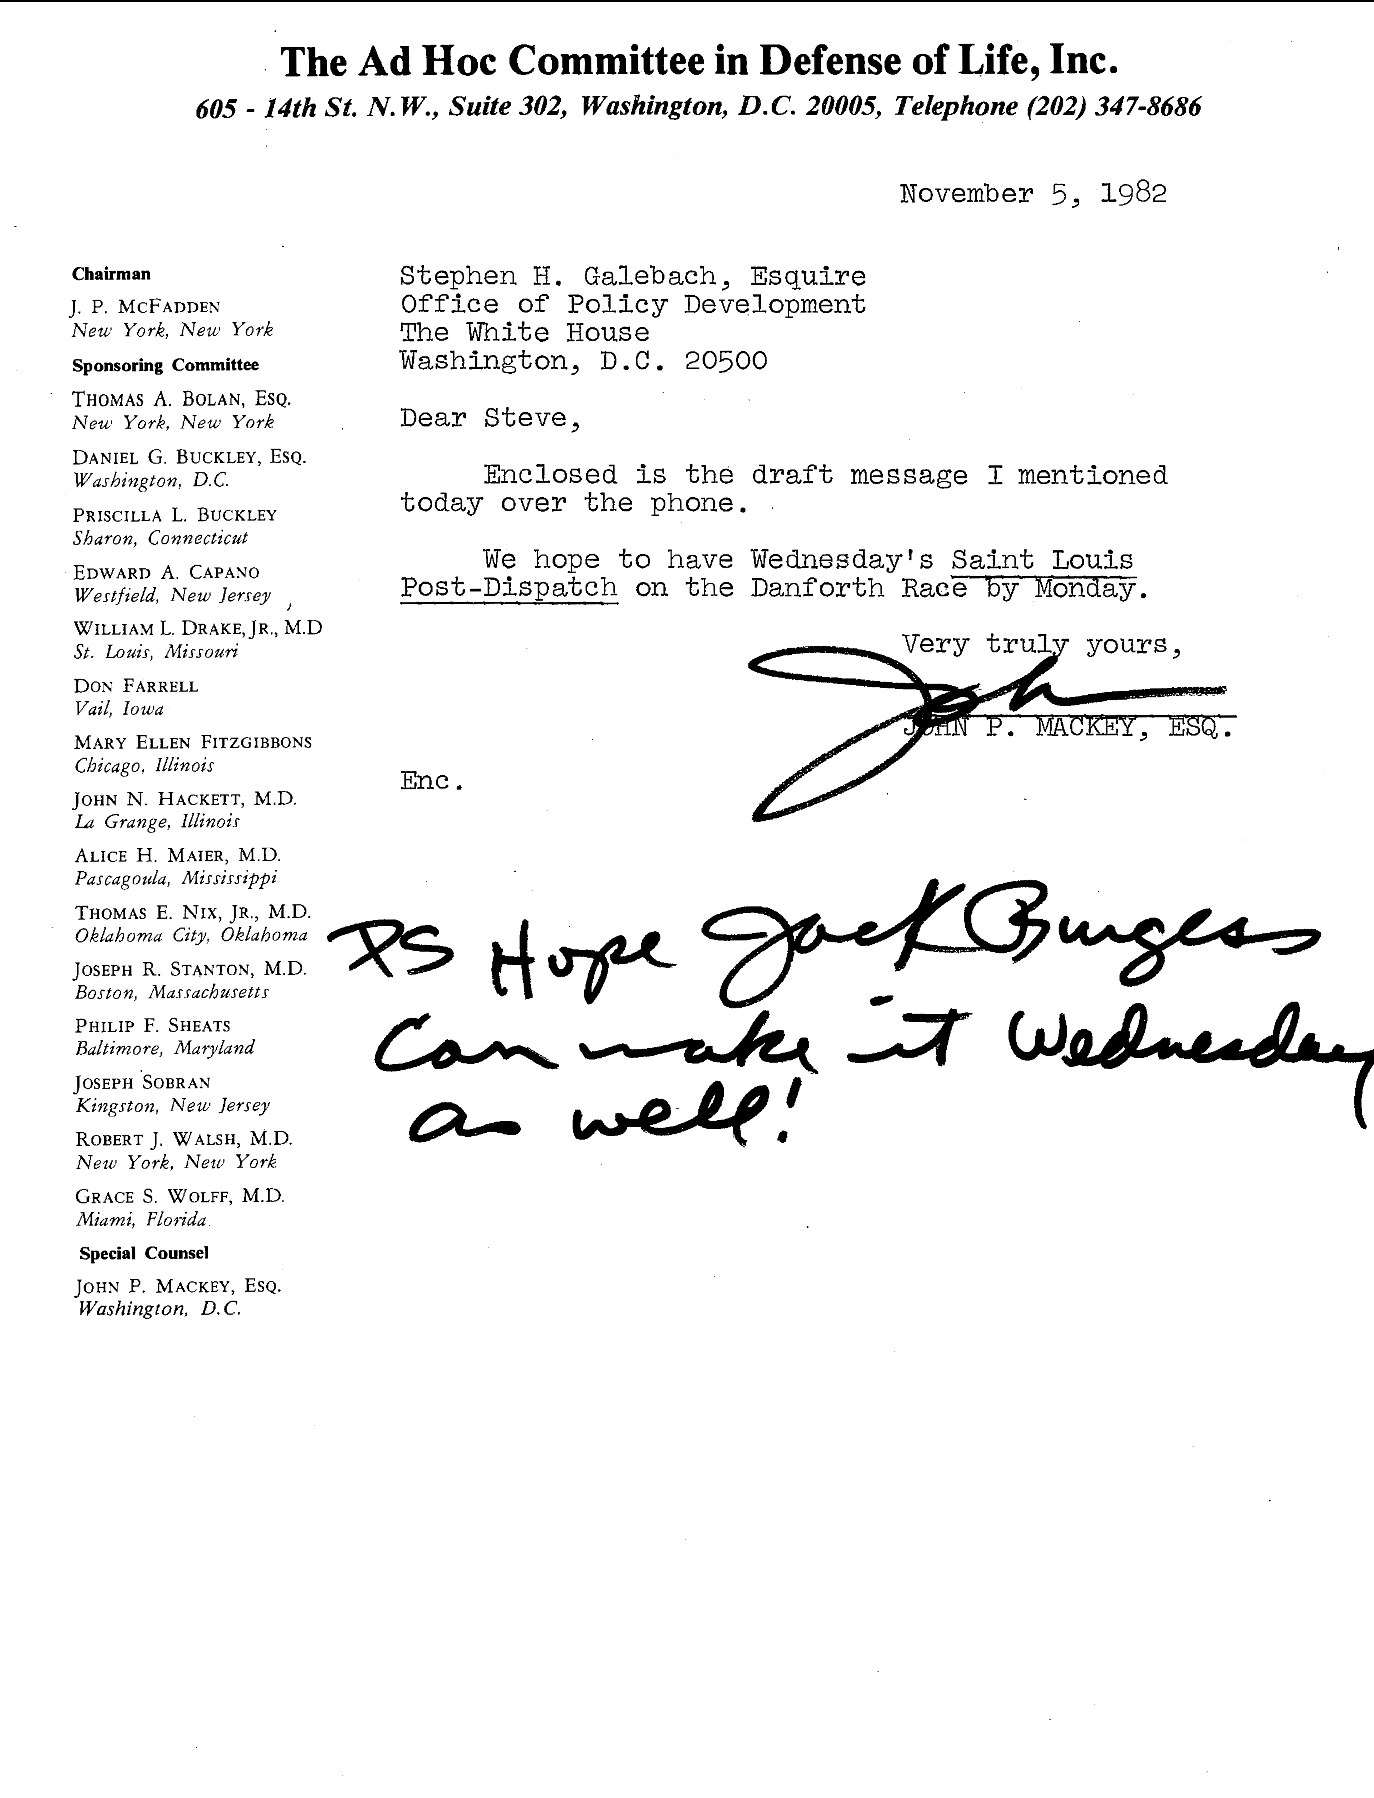 The Ad Hoc Committee in Defense of Life, Inc.
605 - 14th St. N.W., Suite 302, Washington, D.C. 20005, Telephone (202) 347-8686
November 5, 1982
Chairman
J. P. McFADDEN
New York, New York
Sponsoring Committee
THOMAS A. BOLAN, ESQ.
New York, New York
DANIEL G. BUCKLEY, ESQ.
Washington, D.C.
PRISCILLA L. BUCKLEY
Sharon, Connecticut
EDWARD A. CAPANO
Westfield, New Jersey
WILLIAM L. DRAKE, JR., M.D
St. Louis, Missouri
DON FARRELL
Vail, Iowa
MARY ELLEN FITZGIBBONS
Chicago, Illinois
JOHN N. HACKETT, M.D.
La Grange, Illinois
ALICE H. MAIER, M.D.
Pascagoula, Mississippi
THOMAS E. NIX, JR., M.D.
Oklahoma City, Oklahoma
JOSEPH R. STANTON, M.D.
Boston, Massachusetts
PHILIP F. SHEATS
Baltimore, Maryland
JOSEPH SOBRAN
Kingston, New Jersey
ROBERT J. WALSH, M.D.
New York, New York
GRACE S. WOLFF, M.D.
Miami, Florida
Special Counsel
JOHN P. MACKEY, ESQ.
Washington, D.C.
Stephen H. Galebach, Esquire
Office of Policy Development
The White House
Washington, D.C. 20500
Dear Steve,
Enclosed is the draft message I mentioned
today over the phone.
We hope to have Wednesday's Saint Louis
Post-Dispatch on the Danforth Race by Monday.
Very truly yours,
John
JOHN P. MACKEY, ESQ.
Enc.
PS Hope Jack Burgess
Can make it Wednesday
as well!